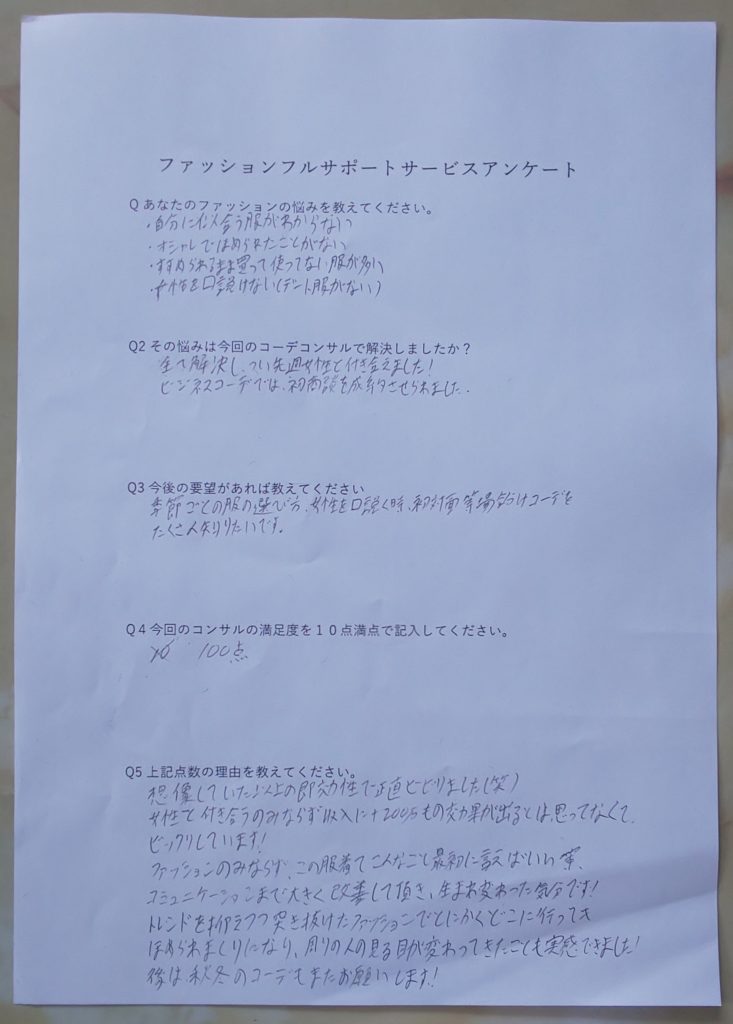 ファッションフルサポートサービスアンケート
Q あなたのファッションの悩みを教えてください。
・自分に似合う服がわからない
・オシャレでほめられたことがない
・すすめられるまま買って使ってない服が多い
・女性を口説けない(デート服がない)
Q2 その悩みは今回のコーデコンサルで解決しましたか？
全て解決し、つい先週女性と付き合えました!
ビジネスコーデでは、初商談を成約させられました.
Q3 今後の要望があれば教えてください
季節ごとの服の選び方、女性を口説く時、初対面等場合分けコーデを
たくさん知りたいです。
Q４今回のコンサルの満足度を１０点満点で記入してください。
100点
Q5 上記点数の理由を教えてください。
想像していた以上の即効性で正直ビビりました(笑)
女性と付き合うのみならず収入に+200%もの効果が出るとは思ってなくて
ビックリしています!
ファッションのみならず、この服着てこんなこと最初に言えばいい等、
コミュニケーションまで大きく改善して頂き、生まれ変わった気分です!
トレンドを抑えつつ突き抜けたファッションでとにかくどこに行っても
ほめられまくりになり、周りの人の見る目が変わってきたことも実感できました!
後は秋冬のコーデもまたお願いします!